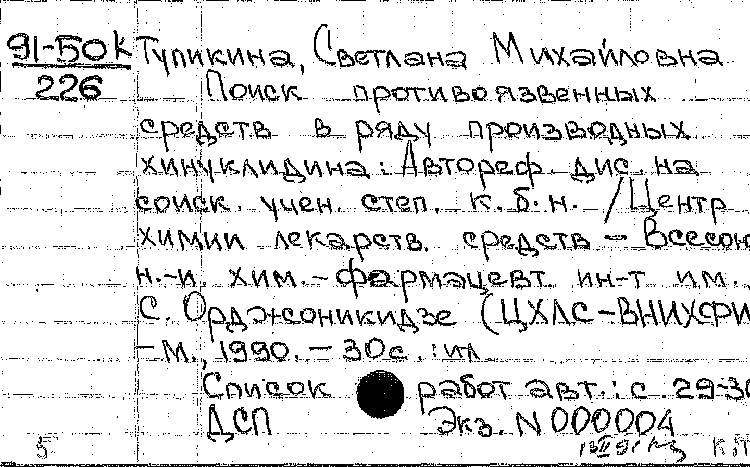 91-50к Тупикина, Светлана Михайловна
226 Поиск противоязвенных
средств в ряду производных
хинуклидина: Автореф. дис. на
соиск. учен. степ. к.б.н. /Центр
химии лекарств. средств - Всесою
н.-и. хим.-фармацевт. ин-т им.
С. Орджоникидзе (ЦХЛС-ВНИХФИ
-М., 1990. - 30с. : ил
Список работ авт.: с. 29-30
ДСП Экз. N 000004
5